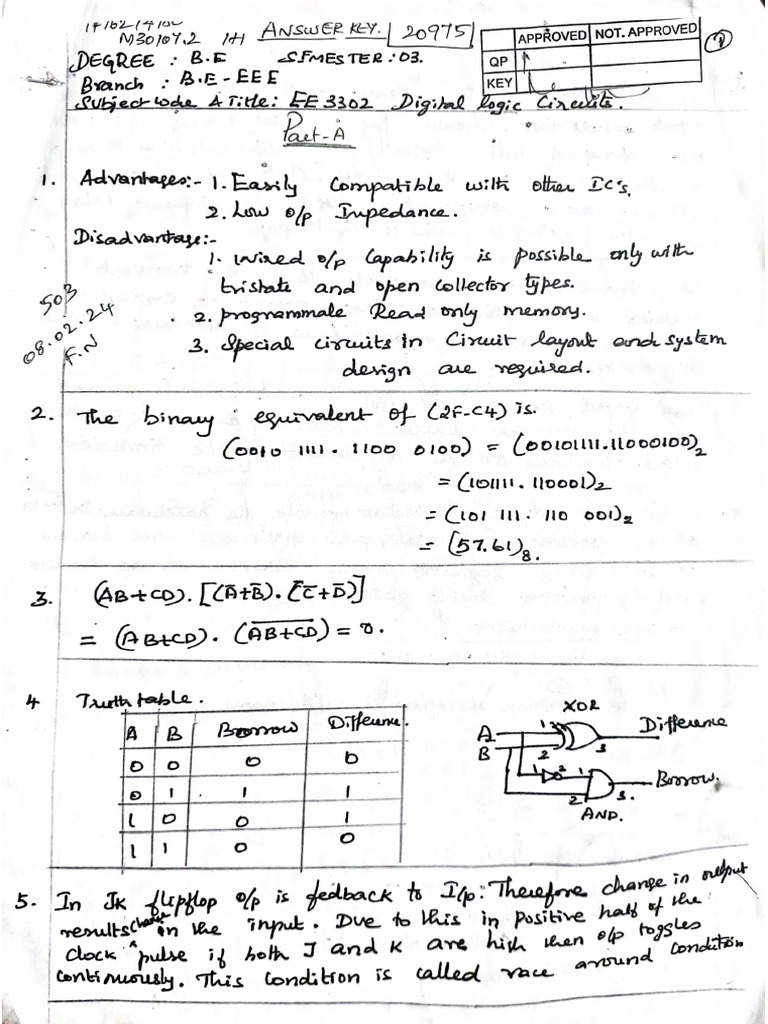 14102/4100
M3010Y.2 1H ANSWER KEY. 20975
APPROVED NOT. APPROVED
QP
KEY
1
DEGREE : B.E SEMESTER : 03.
Branch : B.E - EEE
Subject code & Title: EE 3302 Digital Logic Circuits.
Part-A
1. Advantages:- 1. Easily compatible with other IC's.
2. Low o/p Impedance.
Disadvantage:-
1. Wired o/p Capability is possible only with
tristate and open collector types.
2. programmale Read only memory.
3. Special circuits in Circuit layout and system
design are required.
503
08.02.24
F.N
2. The binary equivalent of (2F-C4) is.
(0010 1111 . 1100 0100) = (00101111.11000100)₂
= (101111. 110001)₂
= (101 111. 110 001)₂
= (57.61)₈.
3. (AB+CD). [(A̅+B̅). (C̅+D̅)]
= (AB+CD). (A̅B̅+̅C̅D̅) = 0.
4 Truth table.
A B Borrow Difference.
0 0 0 0
0 1 1 1
1 0 0 1
1 1 0 0
XOR
A 1 Difference
B 2 3
1 2 1 Borrow.
2 3.
AND.
5. In JK flipflop o/p is fedback to I/p: Therefore change in output
results change in the input. Due to this in positive half of the
clock pulse if both J and K are high then o/p toggles
continuously. This condition is called race around condition